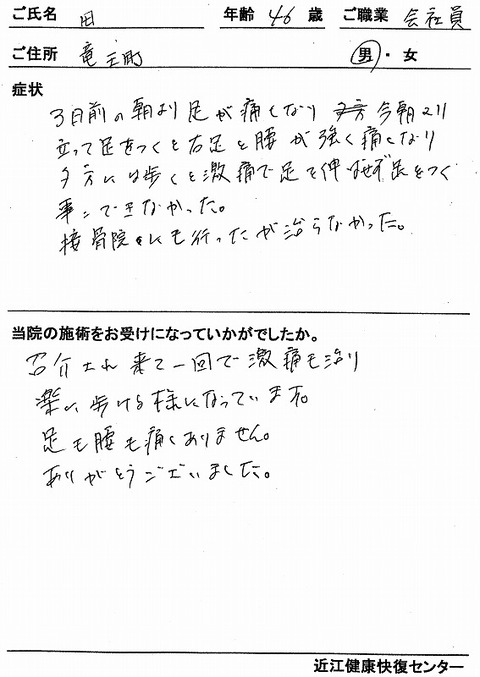 ご氏名 田 年齢 46 歳 ご職業 会社員
ご住所 竜王町 男・女
症状
3日前の朝より足が痛くなり 今朝より
立って足をつくと右足と腰が強く痛くなり
夕方には歩くと激痛で足を伸ばせず足をつく
事ができなかった。
接骨院にも行ったが治らなかった。
当院の施術をお受けになっていかがでしたか。
紹介され来て一回で激痛も治り
楽に歩ける様になっています。
足も腰も痛くありません。
ありがとうございました。
近江健康快復センター